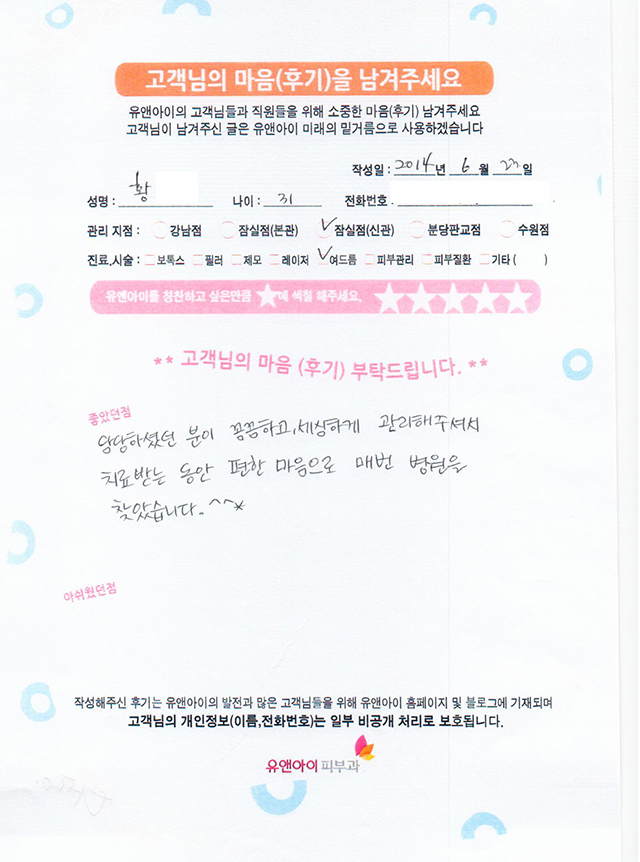 고객님의 마음(후기)을 남겨주세요
유앤아이의 고객님들과 직원들을 위해 소중한 마음(후기) 남겨주세요
고객님이 남겨주신 글은 유앤아이 미래의 밑거름으로 사용하겠습니다
작성일 : 2014년 6월 23일
성명 : 황 나이 : 31 전화번호 .
관리 지점 : 강남점 잠실점(본관) 잠실점(신관) 분당판교점 수원점
진료.시술 : 보톡스 필러 제모 레이저 여드름 피부관리 피부질환 기타 ( )
유앤아이를 칭찬하고 싶은만큼 ★에 색칠 해주세요. ★★★★★
** 고객님의 마음 (후기) 부탁드립니다. **
좋았던점
담당하셨던 분이 꼼꼼하고, 세심하게 관리해주셔서
치료받는 동안 편한 마음으로 매번 병원을
찾았습니다. ^^*
아쉬웠던점
작성해주신 후기는 유앤아이의 발전과 많은 고객님들을 위해 유앤아이 홈페이지 및 블로그에 기재되며
고객님의 개인정보(이름,전화번호)는 일부 비공개 처리로 보호됩니다.
유앤아이 피부과